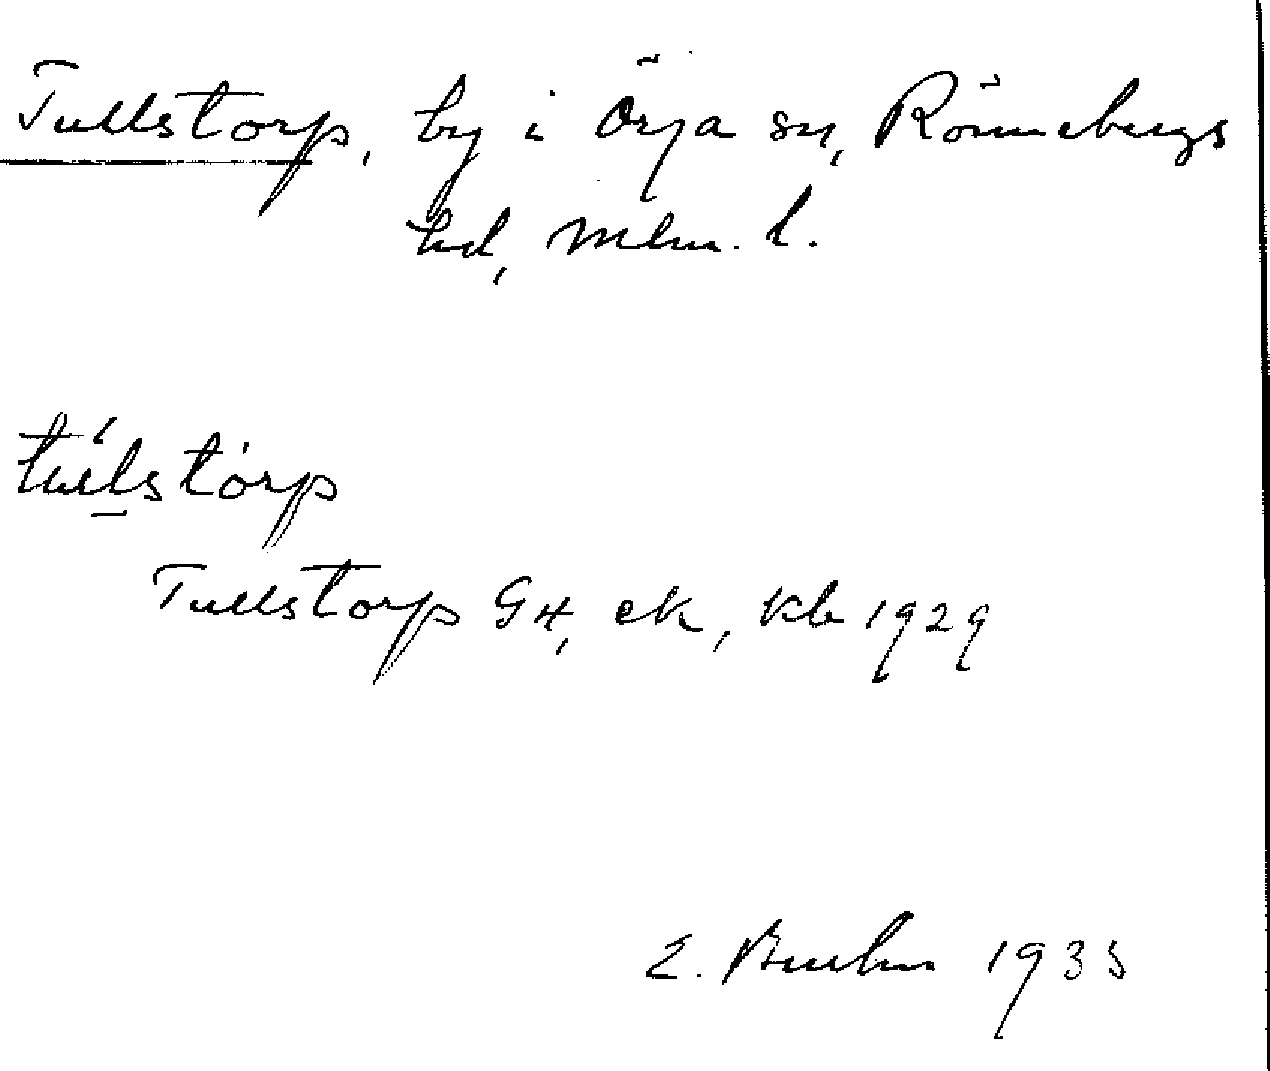 Tullstorp, by i Örja sn, Rönnebergs
hd, Mlm. l.
túlstòrp
Tullstorp G4, ek, kb 1929
E. Bruhn 1935